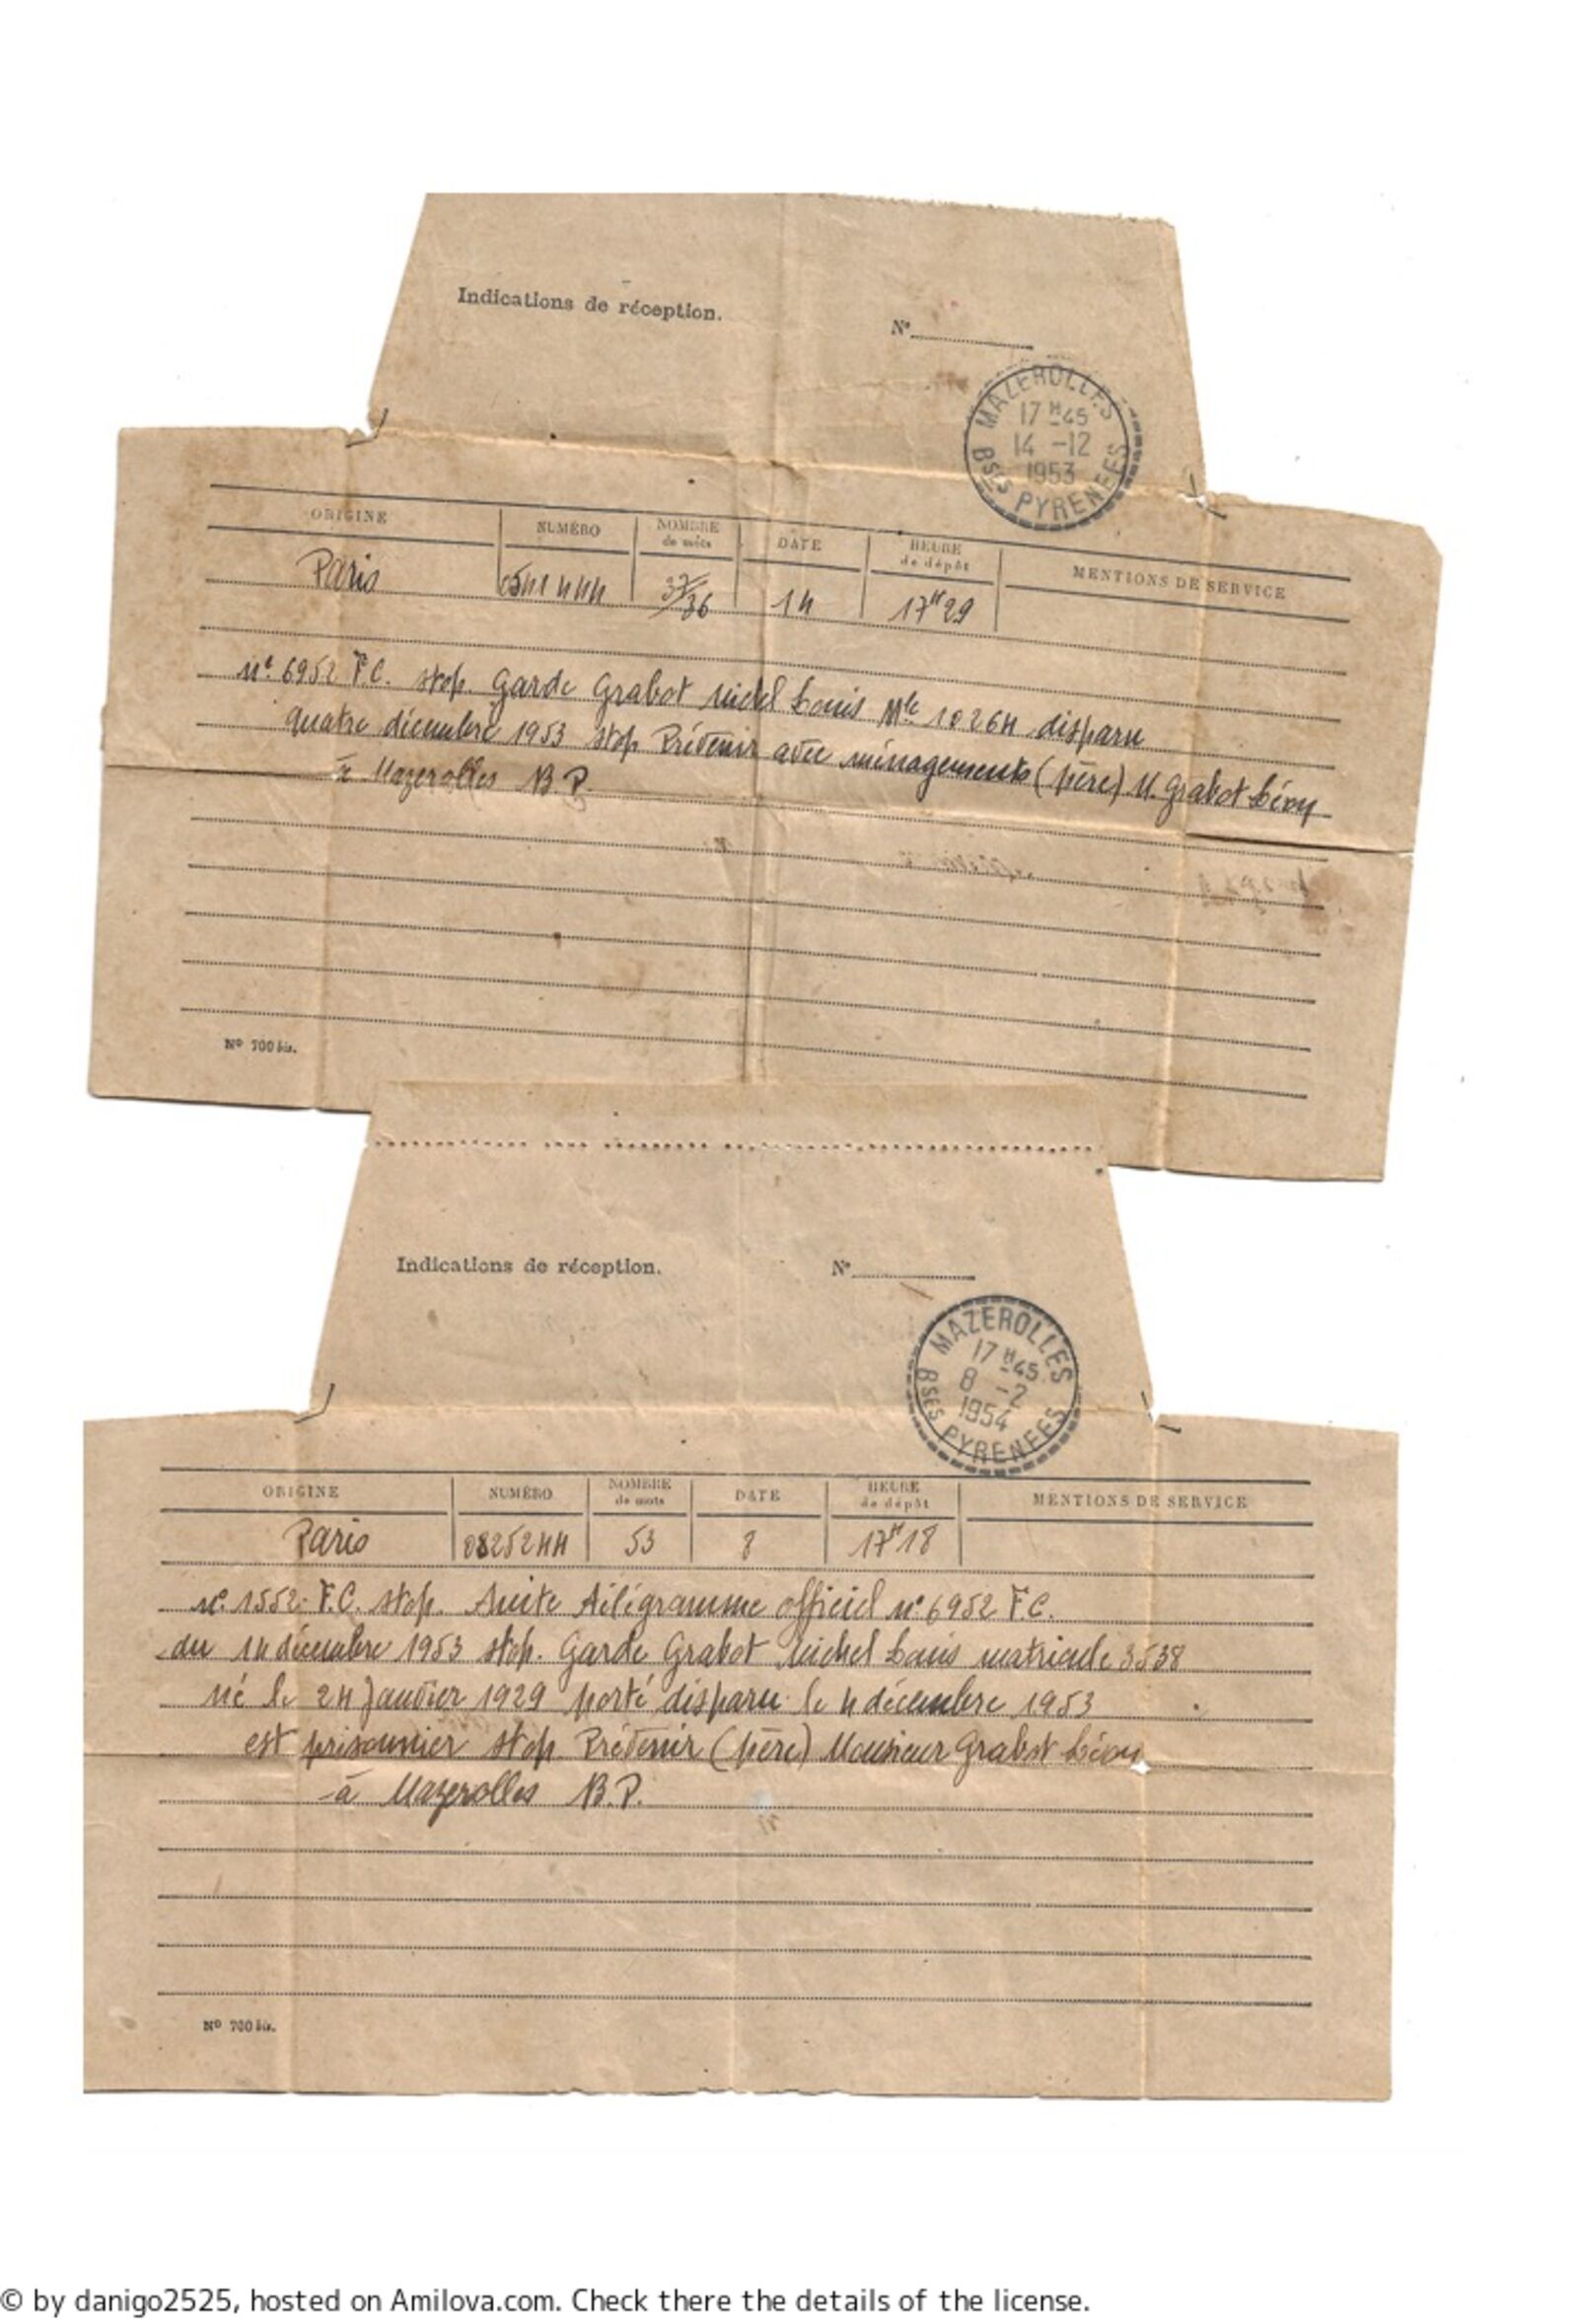 Indications de réception.
N°
MAZEROLLES
17H45
14 -12
1953
BSES PYRENEES
ORIGINE NUMÉRO NOMBRE de mots DATE HEURE de dépôt MENTIONS DE SERVICE
Paris 37/36 14 17H29
N° 6952 F.C. stop. Garde Grabot Michel Louis Mle 10264 disparu
quatre décembre 1953 stop Prévenir avec ménagements (père) M. Grabot Léon
à Mazerolles B.P.
N° 700 bis.
Indications de réception.
N°
MAZEROLLES
17H45
8 -2
1954
BSES PYRENEES
ORIGINE NUMÉRO NOMBRE de mots DATE HEURE de dépôt MENTIONS DE SERVICE
Paris 0825244 53 8 17H18
n° 1552 F.C. stop. Suite Télégramme officiel n° 6952 F.C.
du 14 décembre 1953 stop. Garde Grabot Michel Louis matricule 3538
né le 24 Janvier 1929 porté disparu le 4 décembre 1953
est prisonnier stop. Prévenir (père) Monsieur Grabot Léon
à Mazerolles B.P.
N° 700 bis.
© by danigo2525, hosted on Amilova.com. Check there the details of the license.